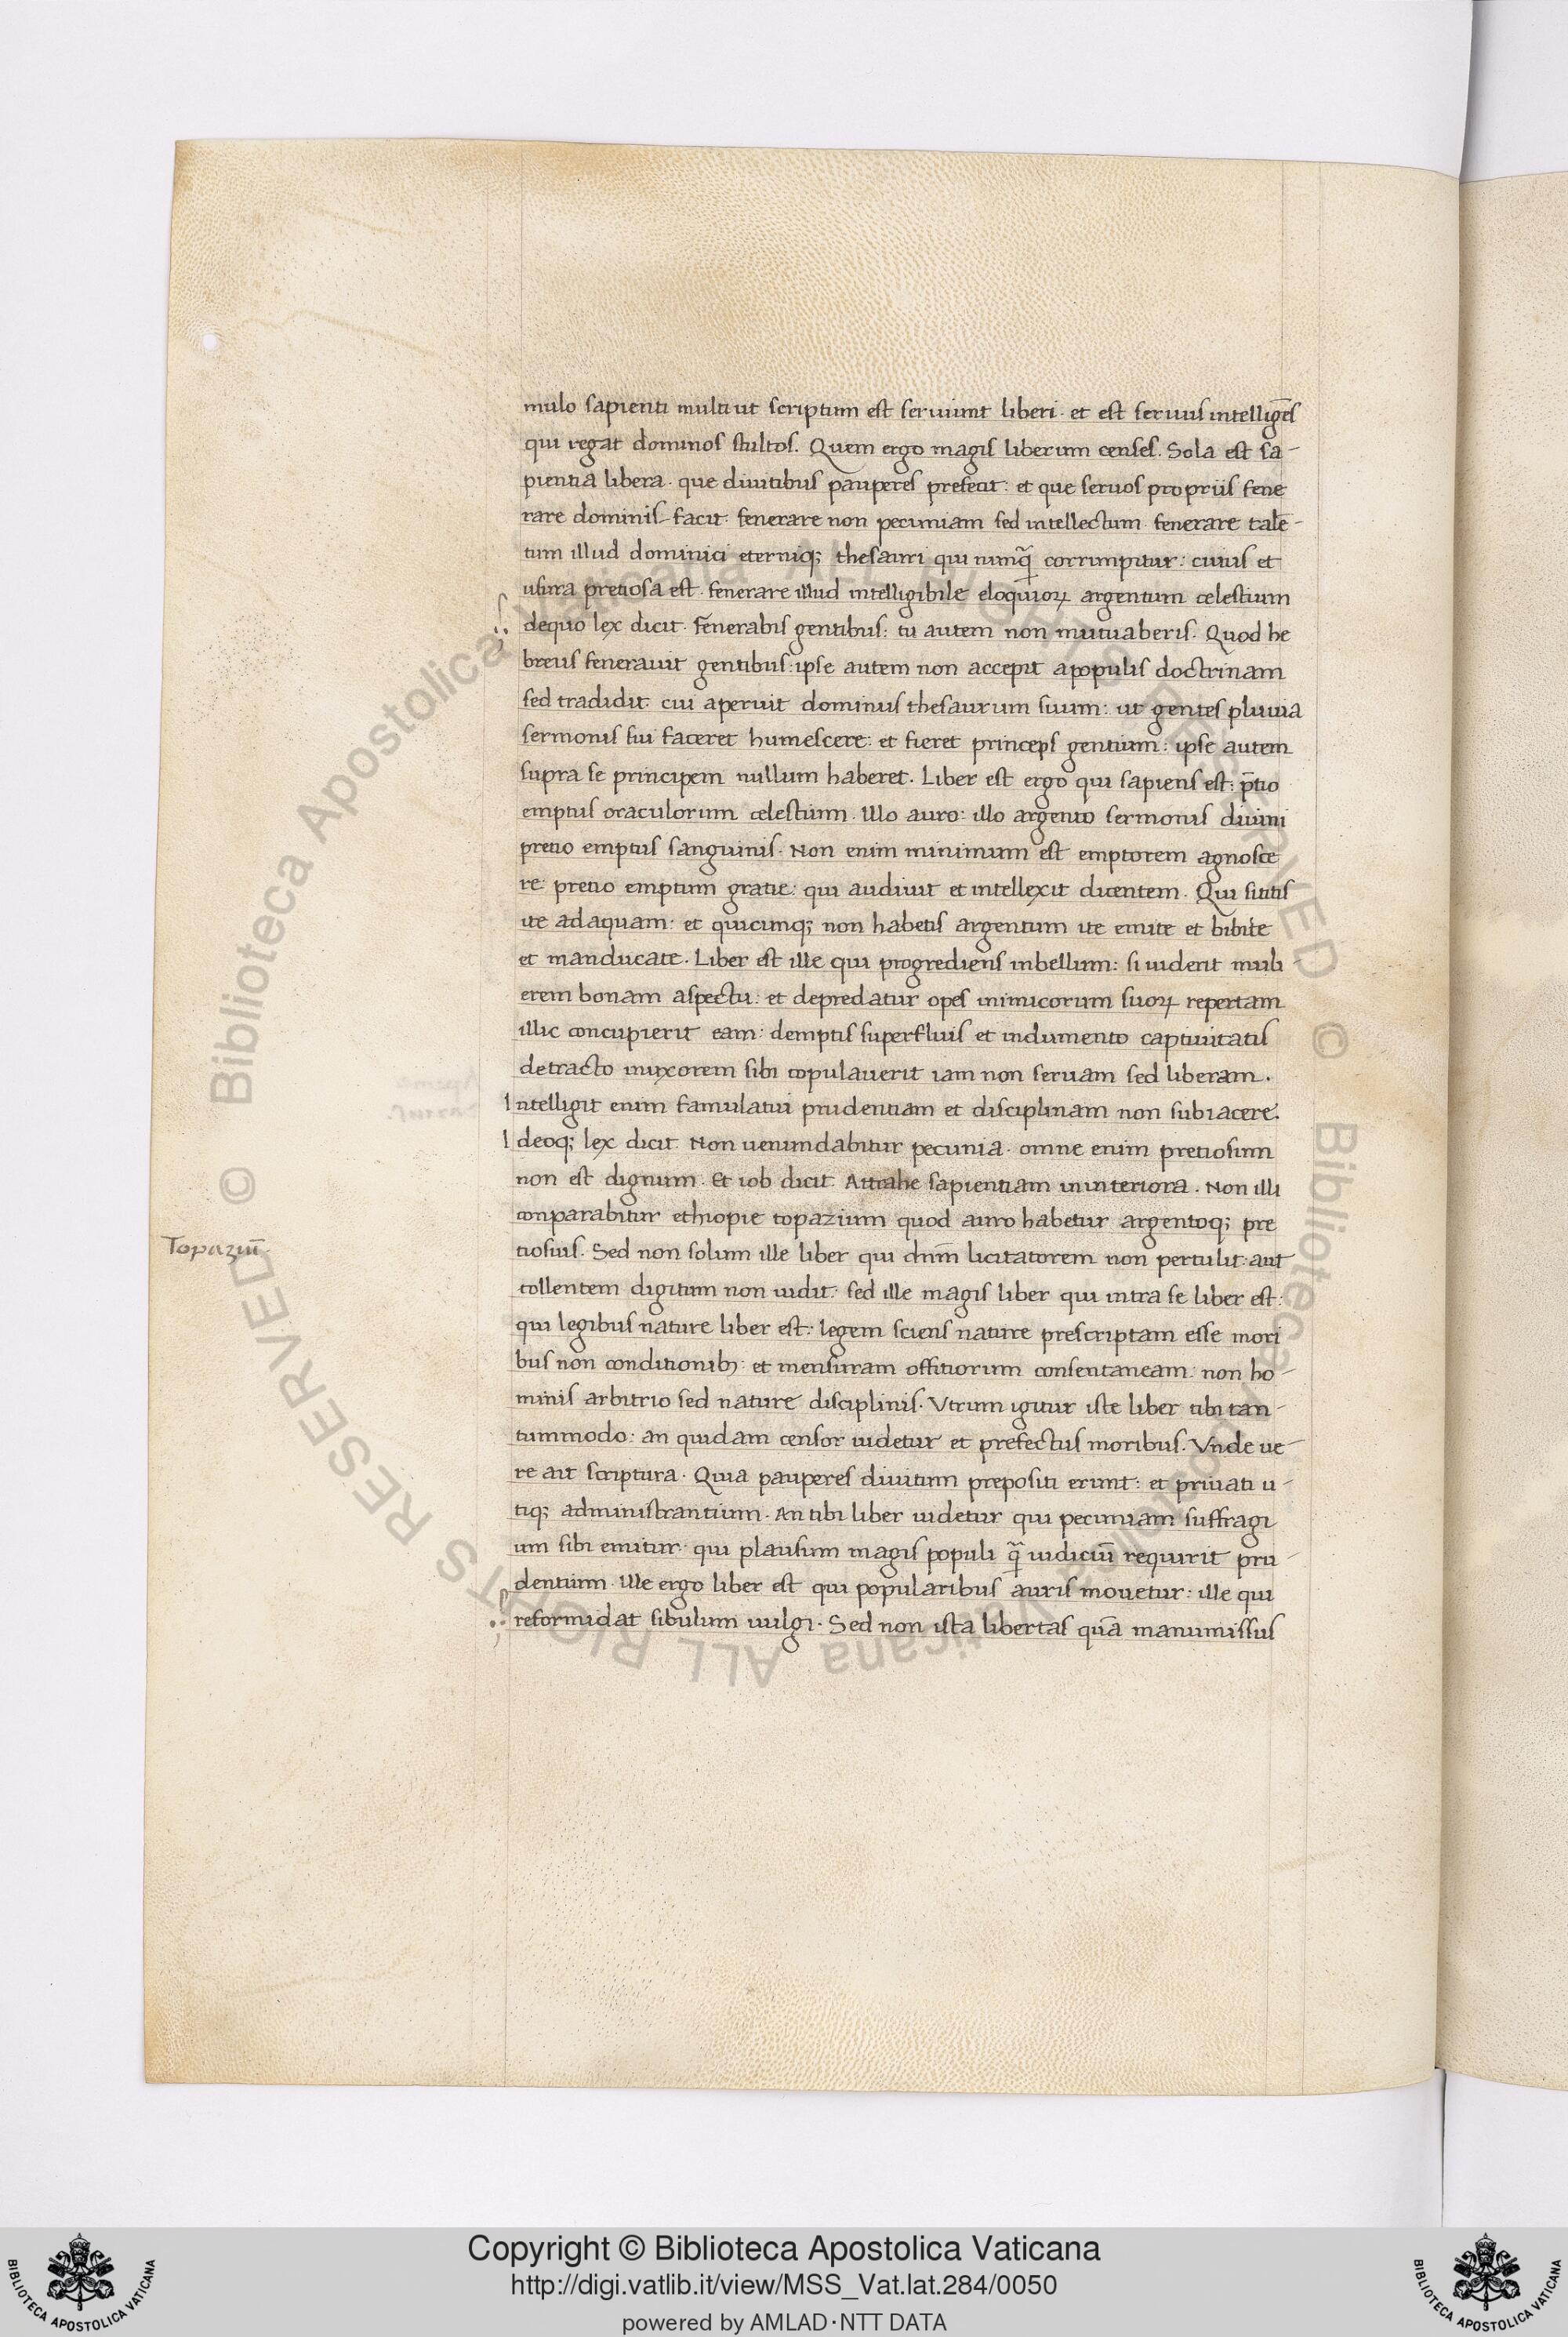 mulo sapienti multi ut scriptum est seruiunt liberi. et est seruus intelligēs
qui regat dominos stultos. Quem ergo magis liberum censes. Sola est sa-
pientia libera. que diuitibus pauperes prefecit: et que seruos propriis fene
rare dominis facit. fenerare non pecuniam sed intellectum. fenerare talē-
tum illud dominici eterniq; thesauri qui nunq̃ corrumpitur: cuius et
usura pretiosa est. fenerare illud intelligibile eloquioꝝ argentum celestium
dequo lex dicit. Fenerabis gentibus: tu autem non mutuaberis. Quod he
breus fenerauit gentibus: ipse autem non accepit apopulis doctrinam
sed tradidit. cui aperuit dominus thesaurum suum: ut gentes pluuia
sermonis sui faceret humescere: et fieret princeps gentium: ipse autem
supra se principem nullum haberet. Liber est ergo qui sapiens est: p̄tio
emptus oraculorum celestium. Illo auro: illo argento sermonis diuini
pretio emptus sanguinis. Non enim minimum est emptorem agnosce
re: pretio emptum gratie: qui audiuit et intellexit dicentem. Qui sititis
ite adaquam: et quicunq; non habetis argentum ite emite et bibite
et manducate. Liber est ille qui progrediens inbellum: si uiderit muli-
erem bonam aspectu: et depredatur opes inimicorum suoꝝ repertam
illic concupierit eam: demptis superfluis et indumento captiuitatis
detracto inuxorem sibi copulauerit iam non seruam sed liberam.
Intelligit enim famulatui prudentiam et disciplinam non subiacere.
Ideoq; lex dicit. Non uenundabitur pecunia. omne enim pretiosum
non est dignum. Et iob dicit. Attrahe sapientiam ininteriora. Non illi
conparabitur ethiopie topazium quod auro habetur argentoq; pre
Topaziū.
tiosius. Sed non solum ille liber qui dn̄m licitatorem non pertulit: aut
tollentem digitum non uidit: sed ille magis liber qui intra se liber est:
qui legibus nature liber est: legem sciens nature prescriptam esse mori
bus non conditionibꝫ: et mensuram offitiorum consentaneam: non ho-
minis arbitrio sed nature disciplinis. Vtrum igitur iste liber tibi tan-
tummodo: an quidam censor uidetur et prefectus moribus. Vnde ue-
re ait scriptura. Quia pauperes diuitum prepositi erunt: et priuati u-
tiq; administrantium. An tibi liber uidetur qui pecuniam suffragi
um sibi emitur. qui plausum magis populi q̃ iudiciū requirit pru-
dentium. Ille ergo liber est qui popularibus auris mouetur: ille qui
reformidat sibulum uulgi. Sed non ista libertas quā manumissus
Copyright © Biblioteca Apostolica Vaticana
http://digi.vatlib.it/view/MSS_Vat.lat.284/0050
powered by AMLAD·NTT DATA